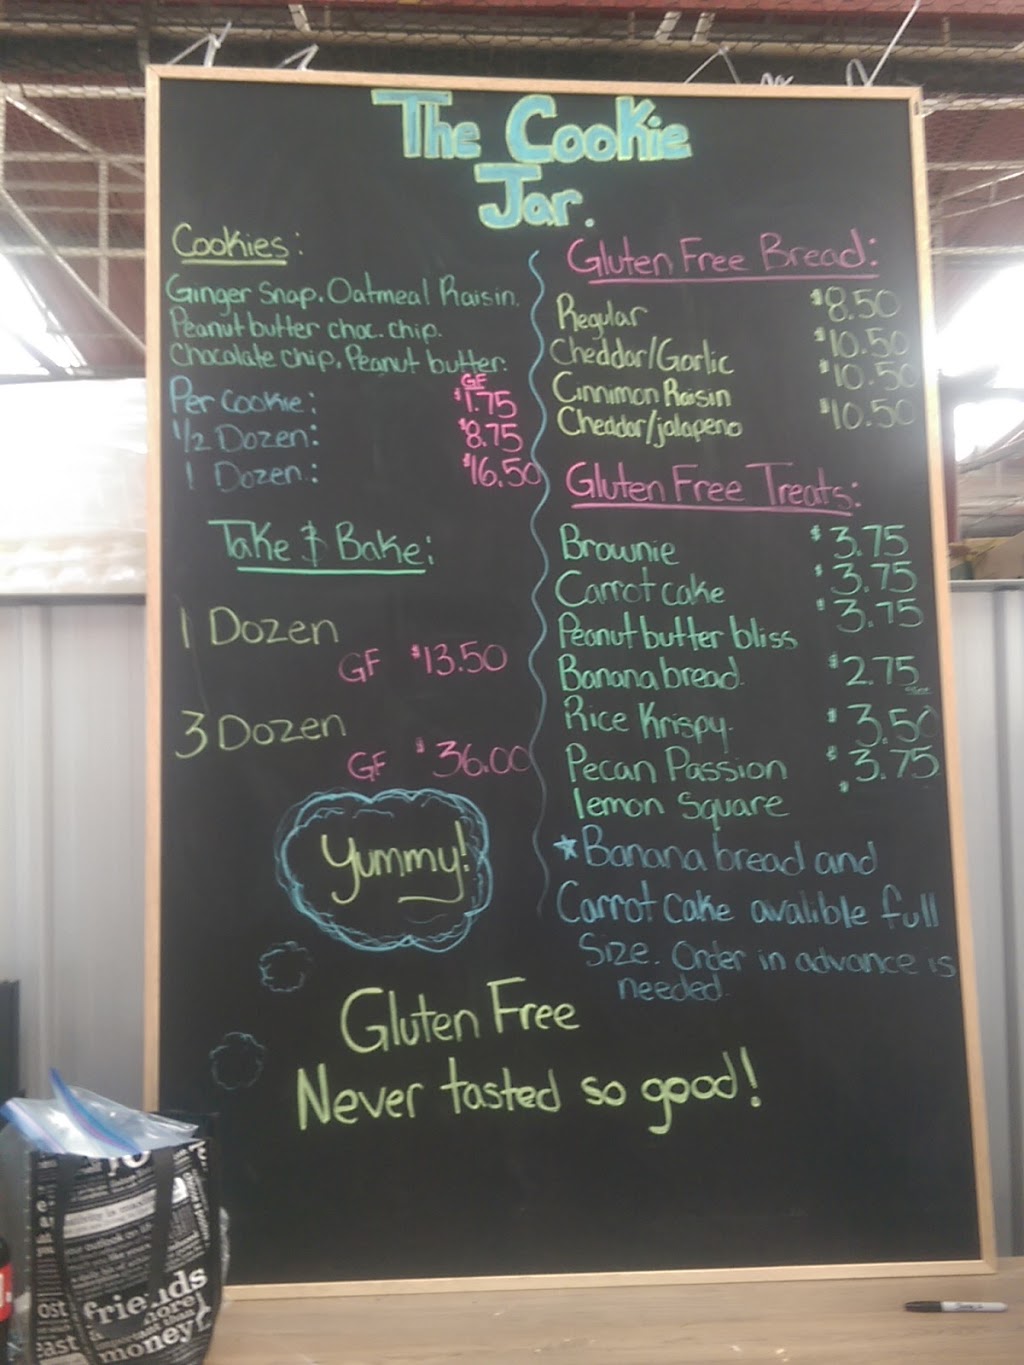 The Cookie
Jar.
Cookies:
Ginger Snap. Oatmeal Raisin.
Peanut butter choc. chip.
Chocolate chip. Peanut butter.
GF
Per Cookie: $1.75
1/2 Dozen: $8.75
1 Dozen: $16.50
Take & Bake:
1 Dozen
GF $13.50
3 Dozen
GF $36.00
Yummy!
Gluten Free Bread:
Regular $8.50
Cheddar/Garlic $10.50
Cinnimon Raisin $10.50
Cheddar/jalapeno $10.50
Gluten Free Treats:
Brownie $3.75
Carrot cake $3.75
Peanut butter bliss $3.75
Banana bread. $2.75
Rice Krispy. $3.50
Pecan Passion $3.75
lemon Square $
*Banana bread and
Carrot cake avalible full
Size. Order in advance is
needed.
Gluten Free
Never tasted so good!
friends
more
important than
money!